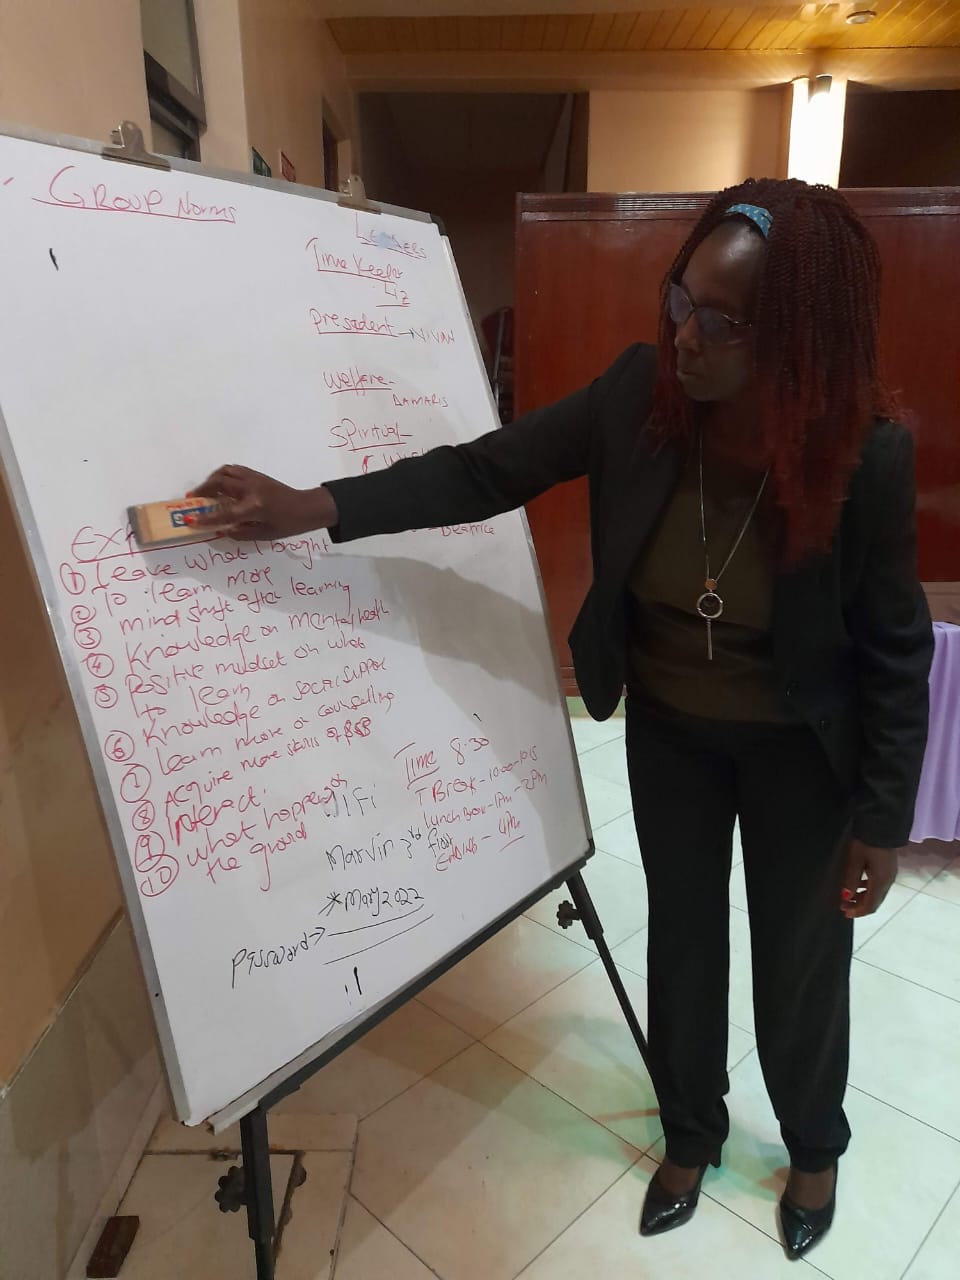 GROUP Norms
LEADERS
Time Keeper
Liz
President - VIVIAN
Welfare -
DAMARIS
Spiritual -
- Beatrice
① Leave what I brought
② To learn more
③ mind shift after learning
④ Knowledge on mental health
⑤ Positive mindset on what
to learn
⑥ Knowledge on social support
⑦ Learn more on counselling
⑧ Acquire more skills of
⑨ Interact.
⑩ what happens on
the ground
Time 8:30
T Break - 10:00 - 10:15
Lunch Break - 1PM - 2PM
ENDING - 4PM
WIFI
Marvin 3rd floor
Password → *Mary2022